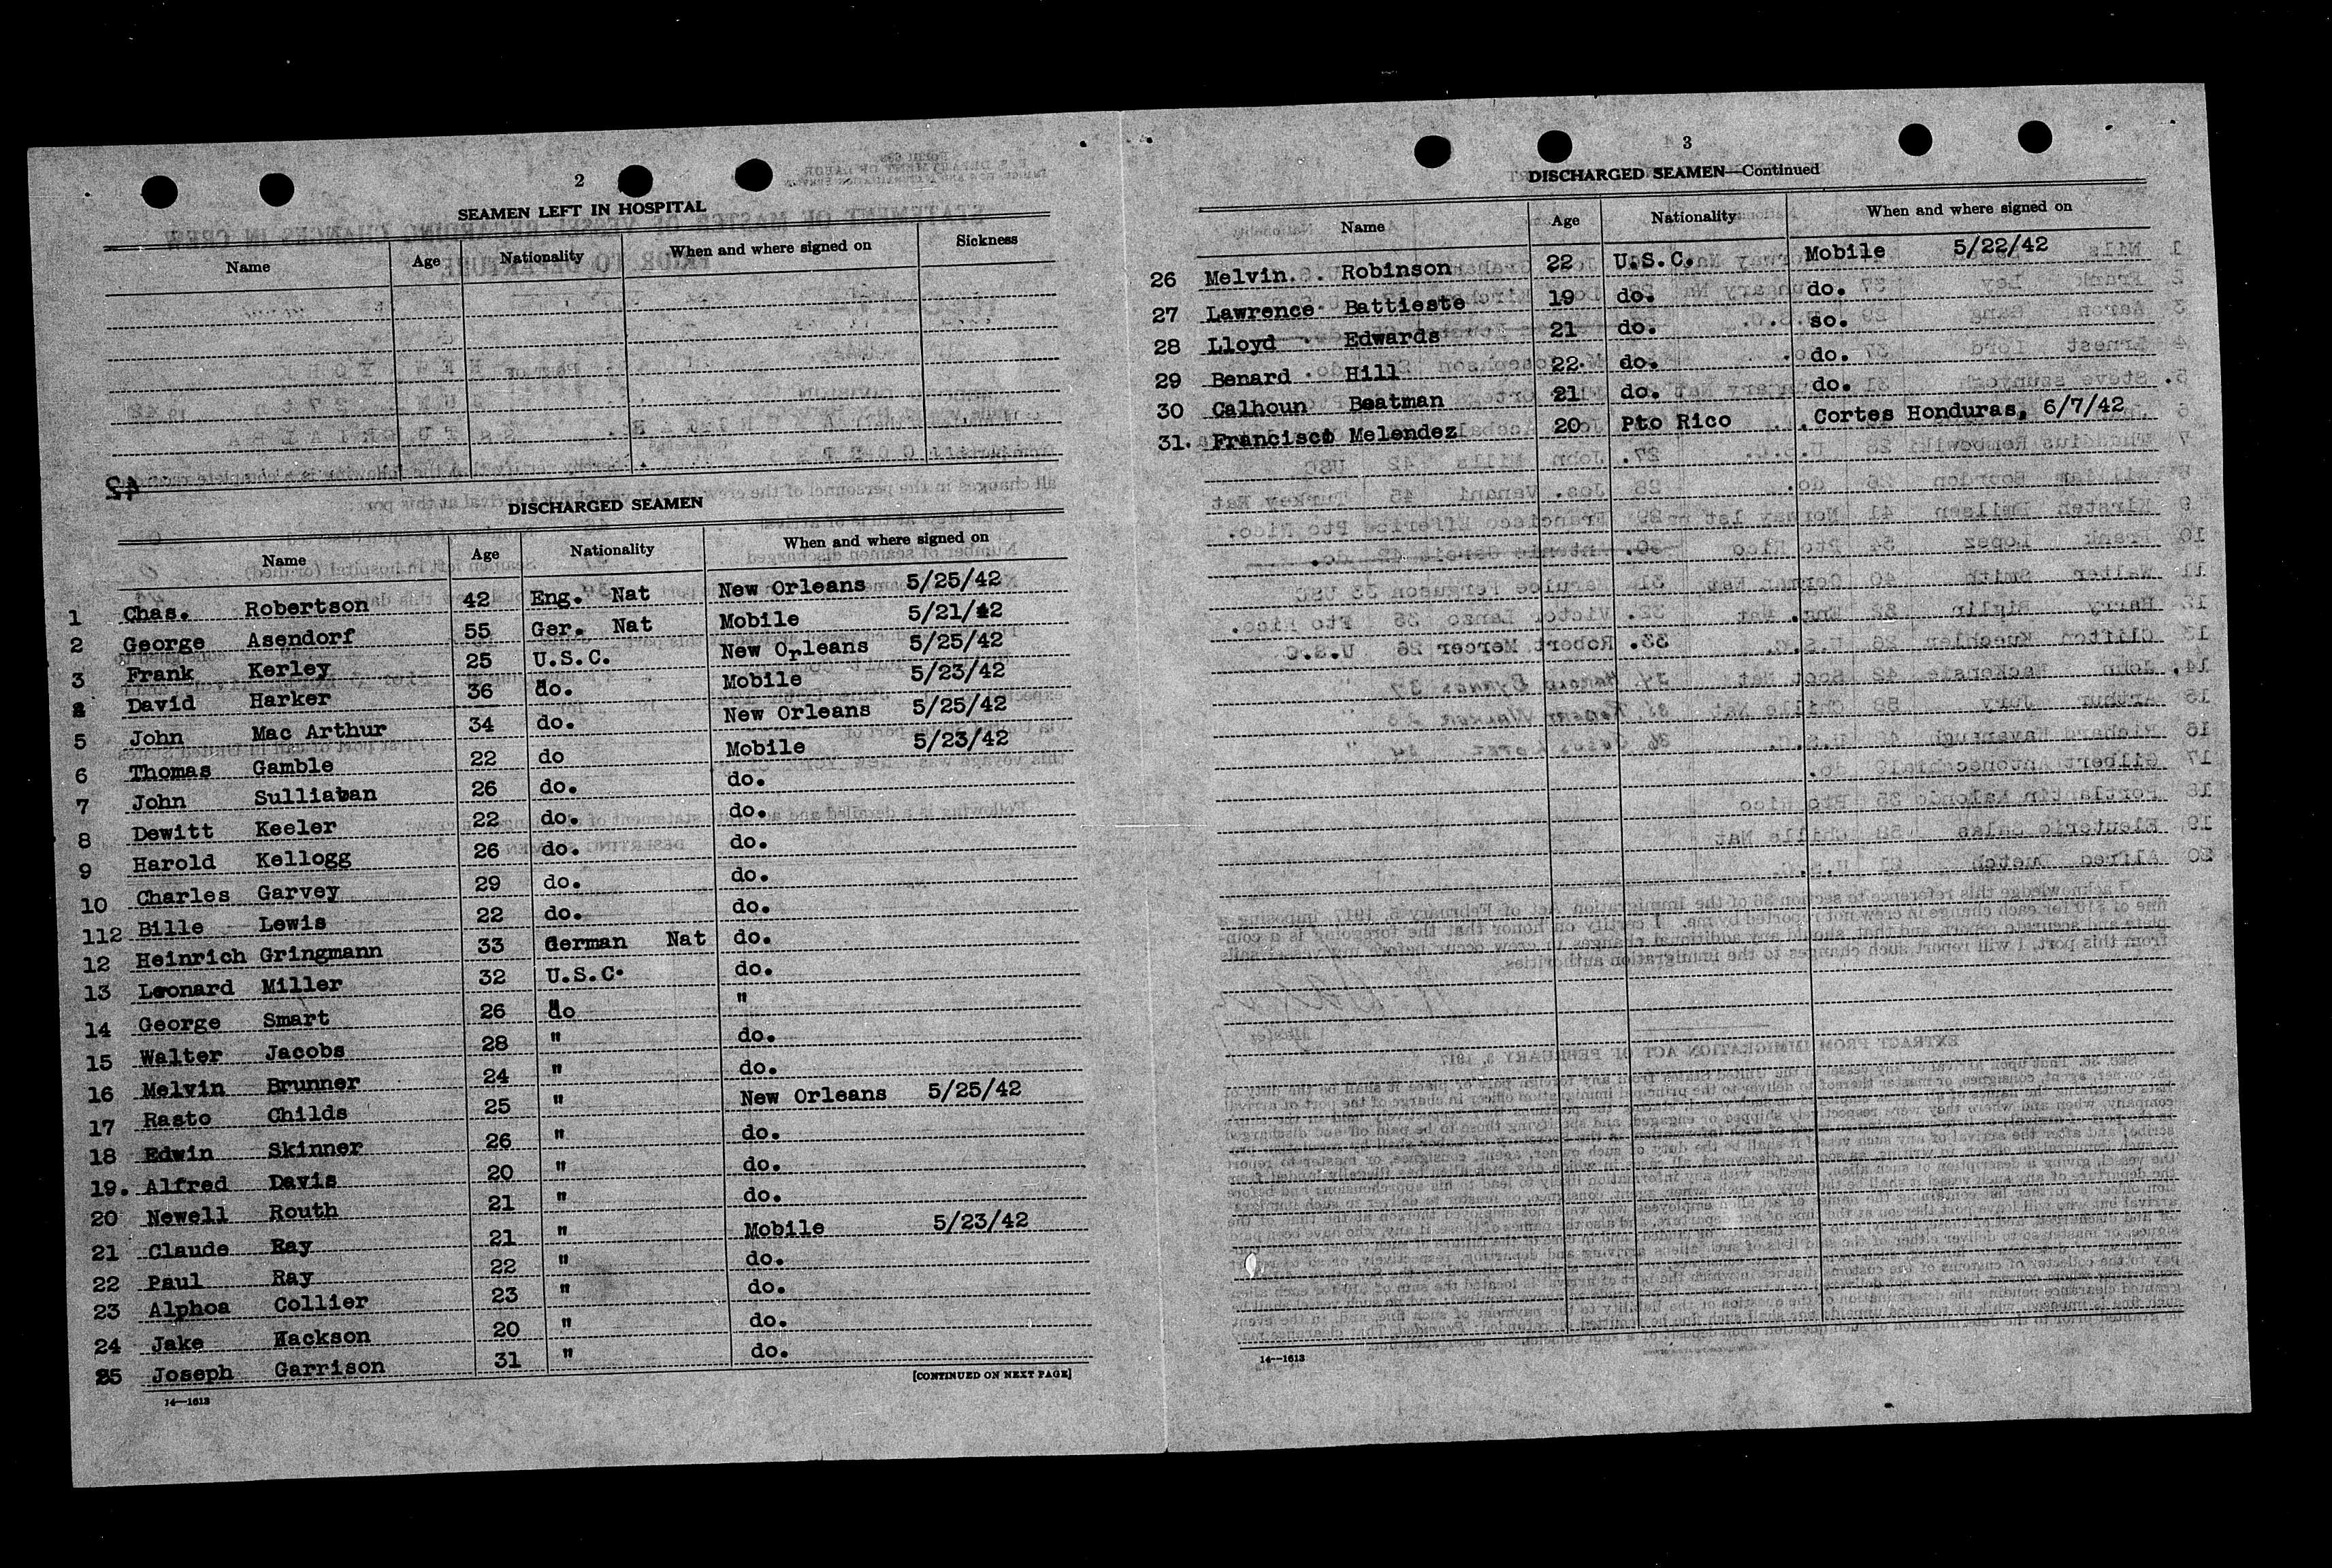 2
SEAMEN LEFT IN HOSPITAL
Name Age Nationality When and where signed on Sickness
DISCHARGED SEAMEN
Name Age Nationality When and where signed on
1 Chas. Robertson 42 Eng. Nat New Orleans 5/25/42
2 George Asendorf 55 Ger. Nat Mobile 5/21/42
3 Frank Kerley 25 U.S.C. New Orleans 5/25/42
David Harker 36 do. Mobile 5/23/42
5 John Mac Arthur 34 do. New Orleans 5/25/42
6 Thomas Gamble 22 do Mobile 5/23/42
7 John Sullia 26 do. do.
8 Dewitt Keeler 22 do. do.
9 Harold Kellogg 26 do. do.
10 Charles Garvey 29 do. do.
112 Bille Lewis 22 do. do.
12 Heinrich Gringmann 33 German Nat do.
13 Leonard Miller 32 U.S.C. do.
14 George Smart 26 do "
15 Walter Jacobs 28 " do.
16 Melvin Brunner 24 " do.
17 Rasto Childs 25 " New Orleans 5/25/42
18 Edwin Skinner 26 " do.
19. Alfred Davis 20 " do.
20 Newell Routh 21 " do.
21 Claude Ray 21 " Mobile 5/23/42
22 Paul Ray 22 " do.
23 Alphoa Collier 23 " do.
24 Jake Hackson 20 " do.
25 Joseph Garrison 31 " do.
[CONTINUED ON NEXT PAGE]
14—1613
3
DISCHARGED SEAMEN—Continued
Name Age Nationality When and where signed on
26 Melvin. Robinson 22 U.S.C. Mobile 5/22/42
27 Lawrence Battieste 19 do. do.
28 Lloyd Edwards 21 do. so.
29 Benard Hill 22 do. do.
30 Calhoun Beatman 21 do. do.
31. Francisco Melendez 20 Pto Rico Cortes Honduras, 6/7/42
14—1613